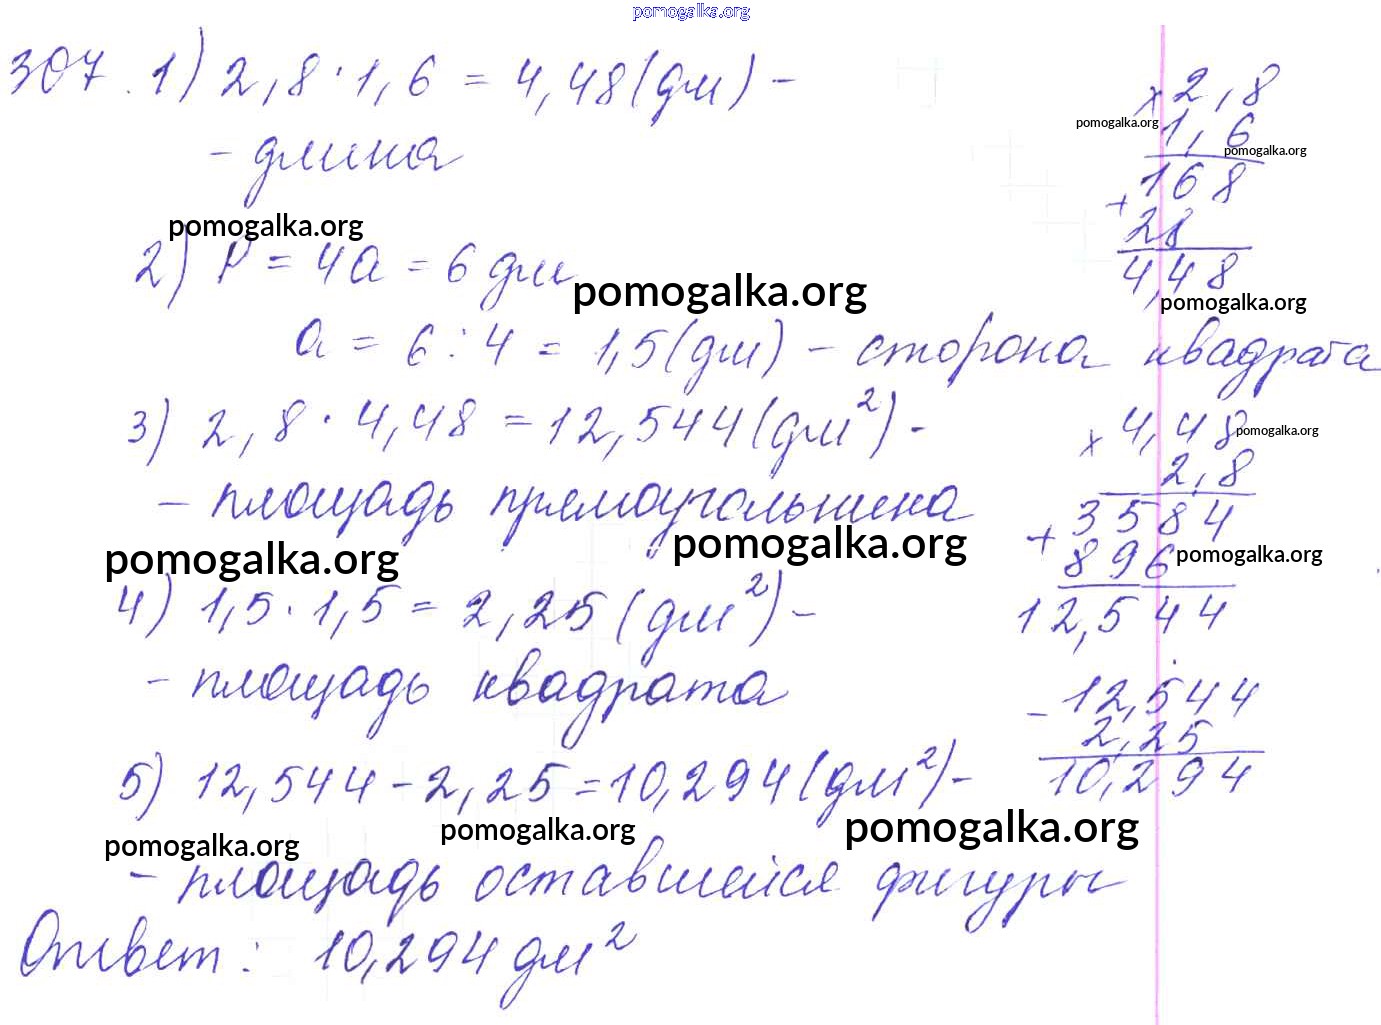 pomogalka.org
307. 1) 2,8 · 1,6 = 4,48 (дм) -
- длина
pomogalka.org
2) P = 4a = 6 дм
pomogalka.org
a = 6 : 4 = 1,5 (дм) - сторона квадрата
3) 2,8 · 4,48 = 12,544 (дм²) -
- площадь прямоугольника
pomogalka.org
pomogalka.org
4) 1,5 · 1,5 = 2,25 (дм²) -
- площадь квадрата
5) 12,544 - 2,25 = 10,294 (дм²) -
pomogalka.org
pomogalka.org
pomogalka.org
- площадь оставшейся фигуры
Ответ: 10,294 дм²
× 2,8
pomogalka.org
1,6
pomogalka.org
168
+
28
4,48
pomogalka.org
× 4,48
pomogalka.org
2,8
+ 3584
896
pomogalka.org
12,544
- 12,544
2,25
10,294